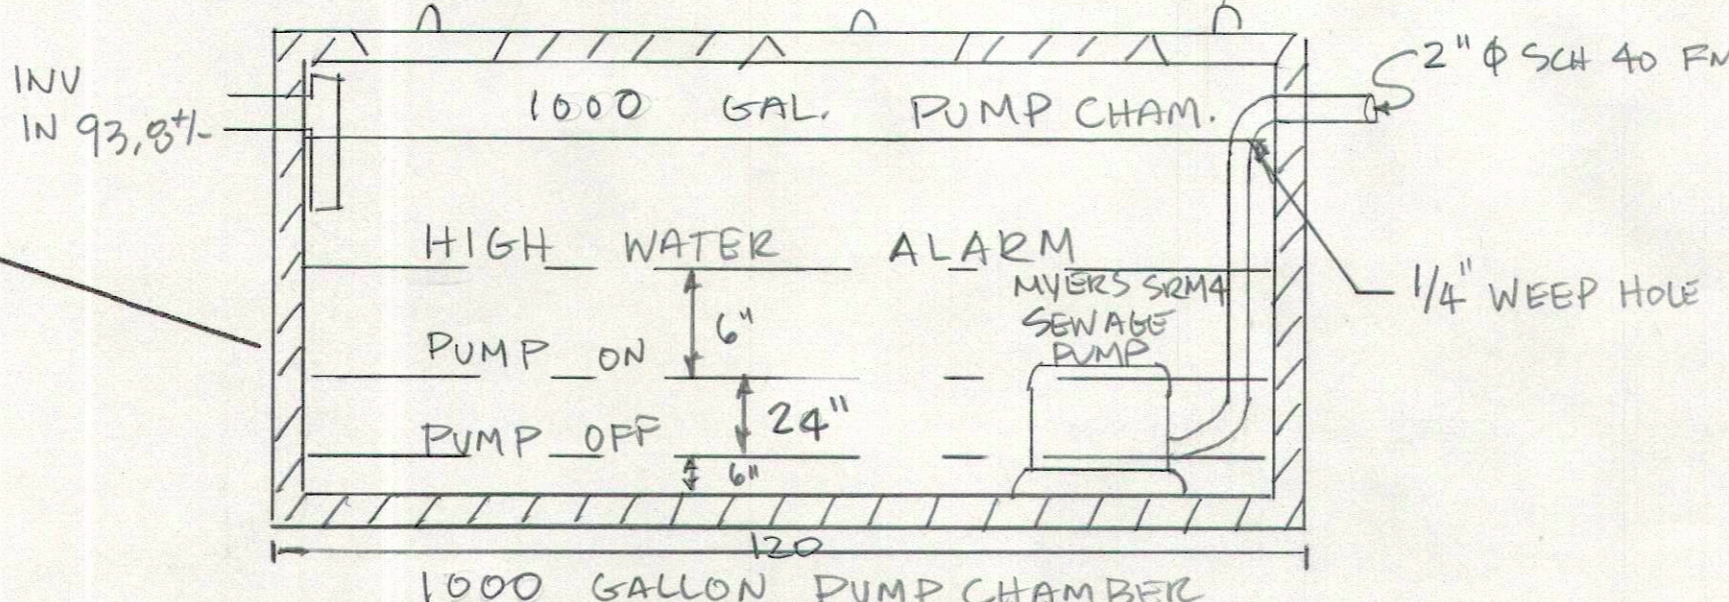 INV
IN 93.8+/-
1000 GAL. PUMP CHAM.
2" ϕ SCH 40
HIGH WATER ALARM
MYERS SRM4
SEWAGE
PUMP
1/4" WEEP HOLE
6"
PUMP ON
24"
PUMP OFF
6"
120
1000 GALLON PUMP CHAMBER